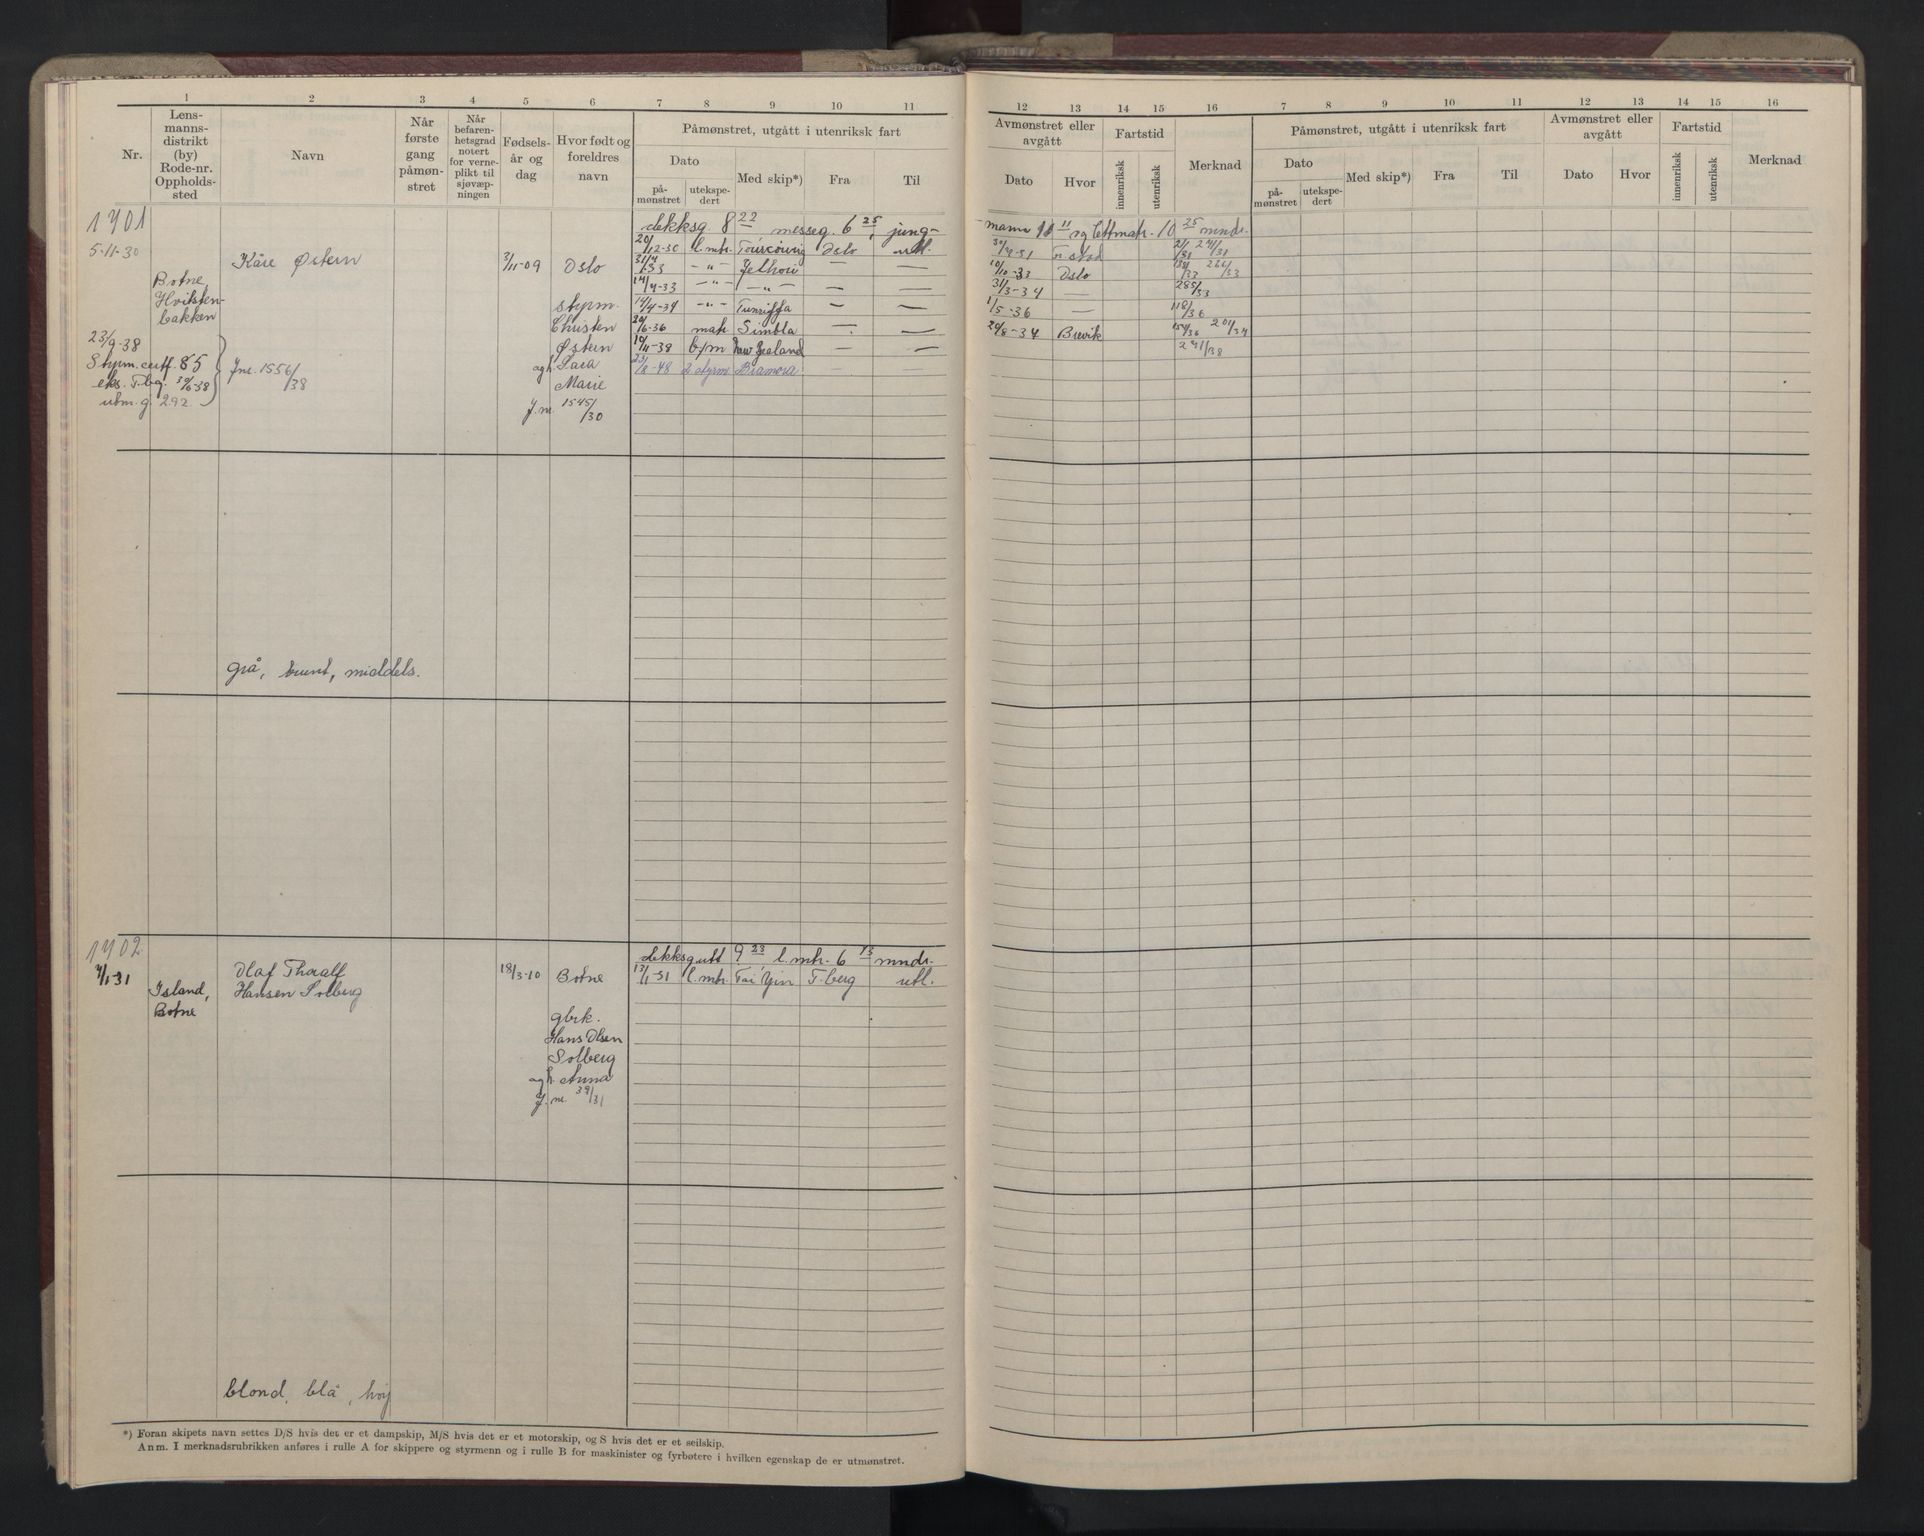 1 2 3 4 5 6 7 8 9 10 11
Nr.
Lens-
manns-
distrikt
(by)
Rode-nr.
Oppholds-
sted
Navn
Når
første
gang
påmøn-
stret
Når
befaren-
hetsgrad
notert
for verne-
plikt til
sjøvæp-
ningen
Fødsels-
år og
dag
Hvor født og
foreldres
navn
Påmønstret, utgått i utenriksk fart
Dato
på-
mønstret
utekspe-
dert
Med skip*)
Fra
Til
12 13 14 15 16 7 8 9 10 11 12 13 14 15 16
Avmønstret eller
avgått
Dato
Hvor
Fartstid
innenriksk
utenriksk
Merknad
Påmønstret, utgått i utenriksk fart
Dato
på-
mønstret
utekspe-
dert
Med skip*)
Fra
Til
Avmønstret eller
avgått
Dato
Hvor
Fartstid
innenriksk
utenriksk
Merknad
1401
5-11-30
Botne
Hviksten-
bakken
23/9-38
Styrm.certf. 85
eks. T.bg. 30/6-38
utm. g. 292.
Kåre Østern
Jnr. 1556/38
3/11-09
Oslo
styrm.
Christen
Østern
og h. Lara
Marie
J.nr. 1545/30
dekksg. 8 22 messeg. 6 25, jung-
20/12-30 l.mtr. Tourcoing Oslo utl.
31/1-33 -"- Jethou — —
14/4-33 -"- -"- — —
14/4-34 -"- — —
20/6-36 matr Simbla — —
10/11-38 b/m New Zealand — —
23/8-48 2 styrm Bramora — —
mann 11 11 og lettmatr. 10 25 mndr.
30/9-31 Fr.stad 21/31 241/31
10/10-33 Oslo 131/33 264/33
31/3-34 — 285/33
1/5-36 — 118/36
20/8-34 Brevik 154/36 201/34
241/38
grå, brunt, middels.
1402.
7/1-31
Island,
Botne
Olaf Thoralf
Hansen Solberg
18/3-10
Botne
gbrk.
Hans Olsen
Solberg
og h. Anna
J. nr. 39/31
dekksgutt 9 23 l.mtr. 6 13 mndr.
13/1-31 l.mtr. Tai Yin T.berg utl.
blond, blå, høy
*) Foran skipets navn settes D/S hvis det er et dampskip, M/S hvis det er et motorskip, og S hvis det er et seilskip.
Anm. I merknadsrubrikken anføres i rulle A for skippere og styrmenn og i rulle B for maskinister og fyrbøtere i hvilken egenskap de er utmønstret.